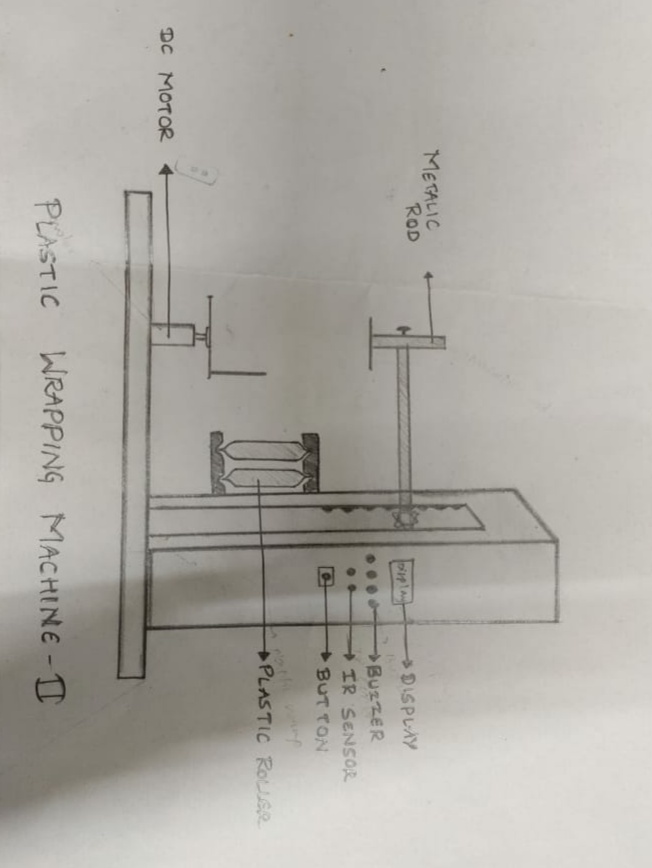 METALIC
ROD
Display
DISPLAY
BUZZER
IR SENSOR
BUTTON
PLASTIC ROLLER
DC MOTOR
PLASTIC WRAPPING MACHINE - II